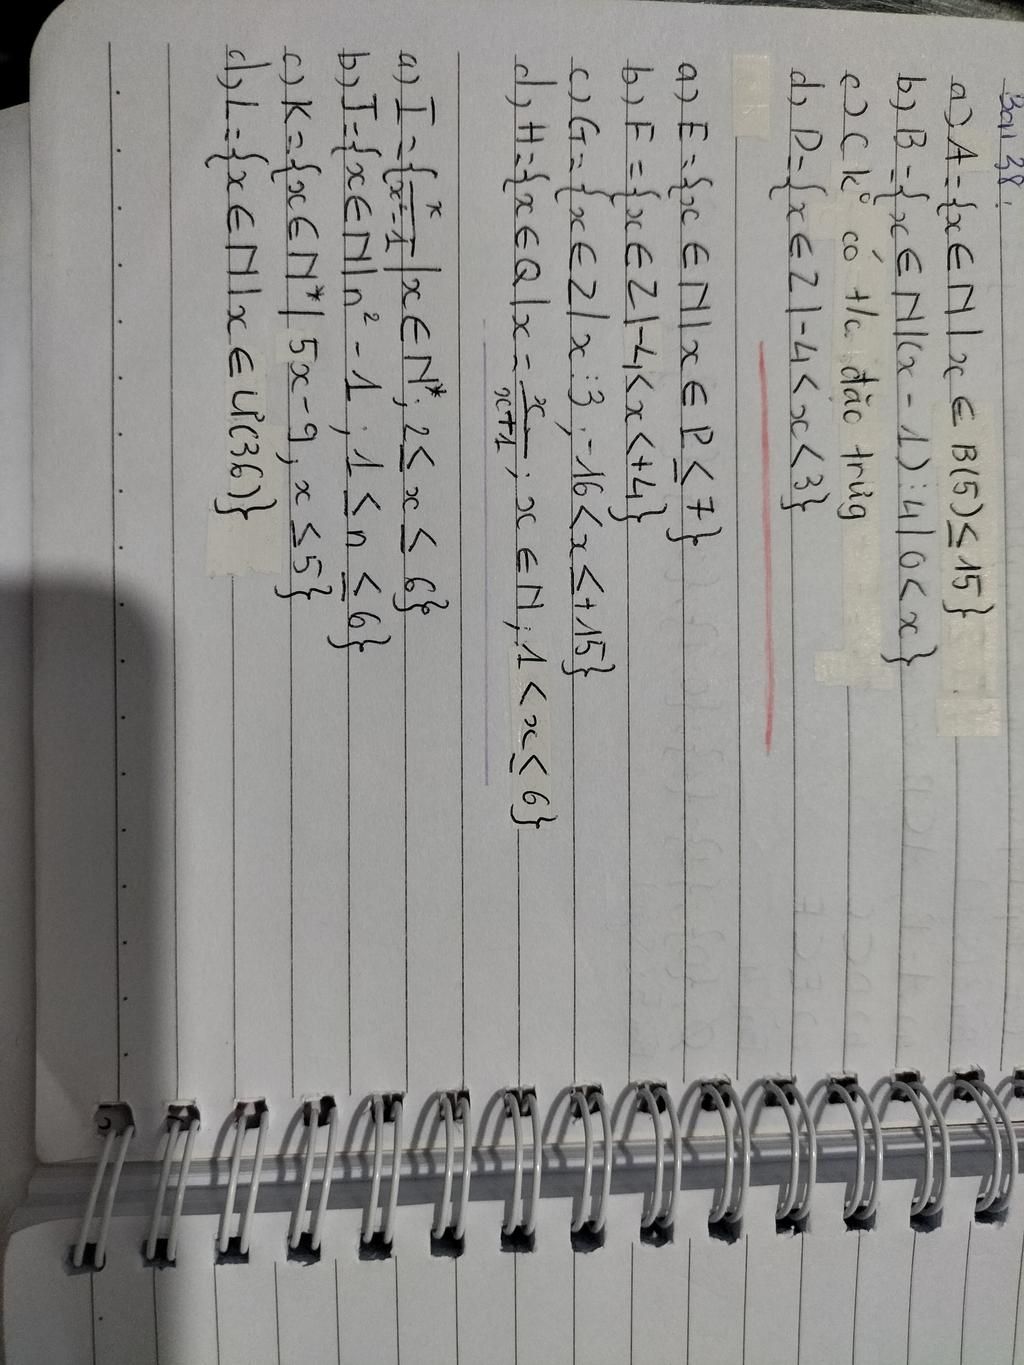 Bài 38:
a) A = {x ∈ N | x ∈ B(5) ≤ 15}
b) B = {x ∈ N | (x - 1) ⋮ 4 | 0 < x}
c) C k° có t/c đặc trưng
d) D = {x ∈ Z | -4 < x < 3}
a) E = {x ∈ N | x ∈ P ≤ 7}
b) F = {x ∈ Z | -4 < x < +4}
c) G = {x ∈ Z | x ⋮ 3; -16 < x ≤ +15}
d) H = {x ∈ Q | x = x/(x+1); x ∈ N; 1 < x ≤ 6}
a) I = {x/(x²-1) | x ∈ N*; 2 ≤ x ≤ 6}
b) J = {x ∈ N | n² - 1; 1 ≤ n ≤ 6}
c) K = {x ∈ N* | 5x - 9; x ≤ 5}
d) L = {x ∈ N | x ∈ Ư(36)}